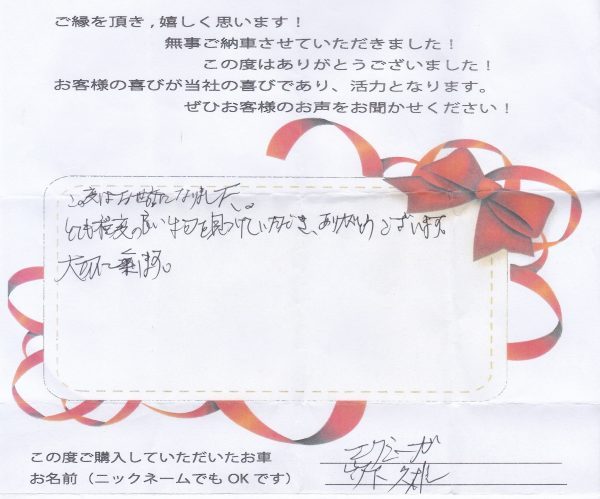 ご縁を頂き,嬉しく思います！
無事ご納車させていただきました！
この度はありがとうございました！
お客様の喜びが当社の喜びであり、活力となります。
ぜひお客様のお声をお聞かせください！
この度はお世話になりました。
とても程度の良い車両を見つけていただき、ありがとうございます。
大切に乗ります。
この度ご購入していただいたお車
お名前（ニックネームでもOKです）